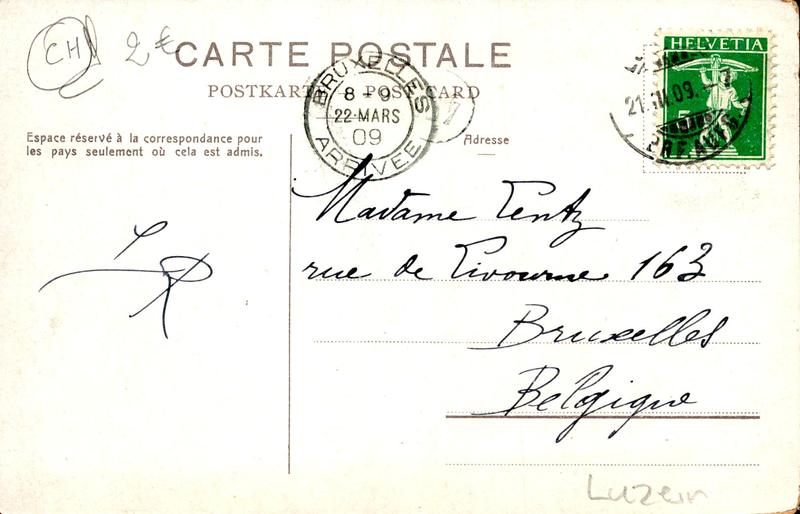 CH 2€
CARTE POSTALE
POSTKARTE – POST CARD
Espace réservé à la correspondance pour
les pays seulement où cela est admis.
Adresse
BRUXELLES
8 – 9
22 MARS
09
ARRIVÉE
HELVETIA
5
21.III.09.
Madame Lentz
rue de Livourne 163
Bruxelles
Belgique
LR
Luzern